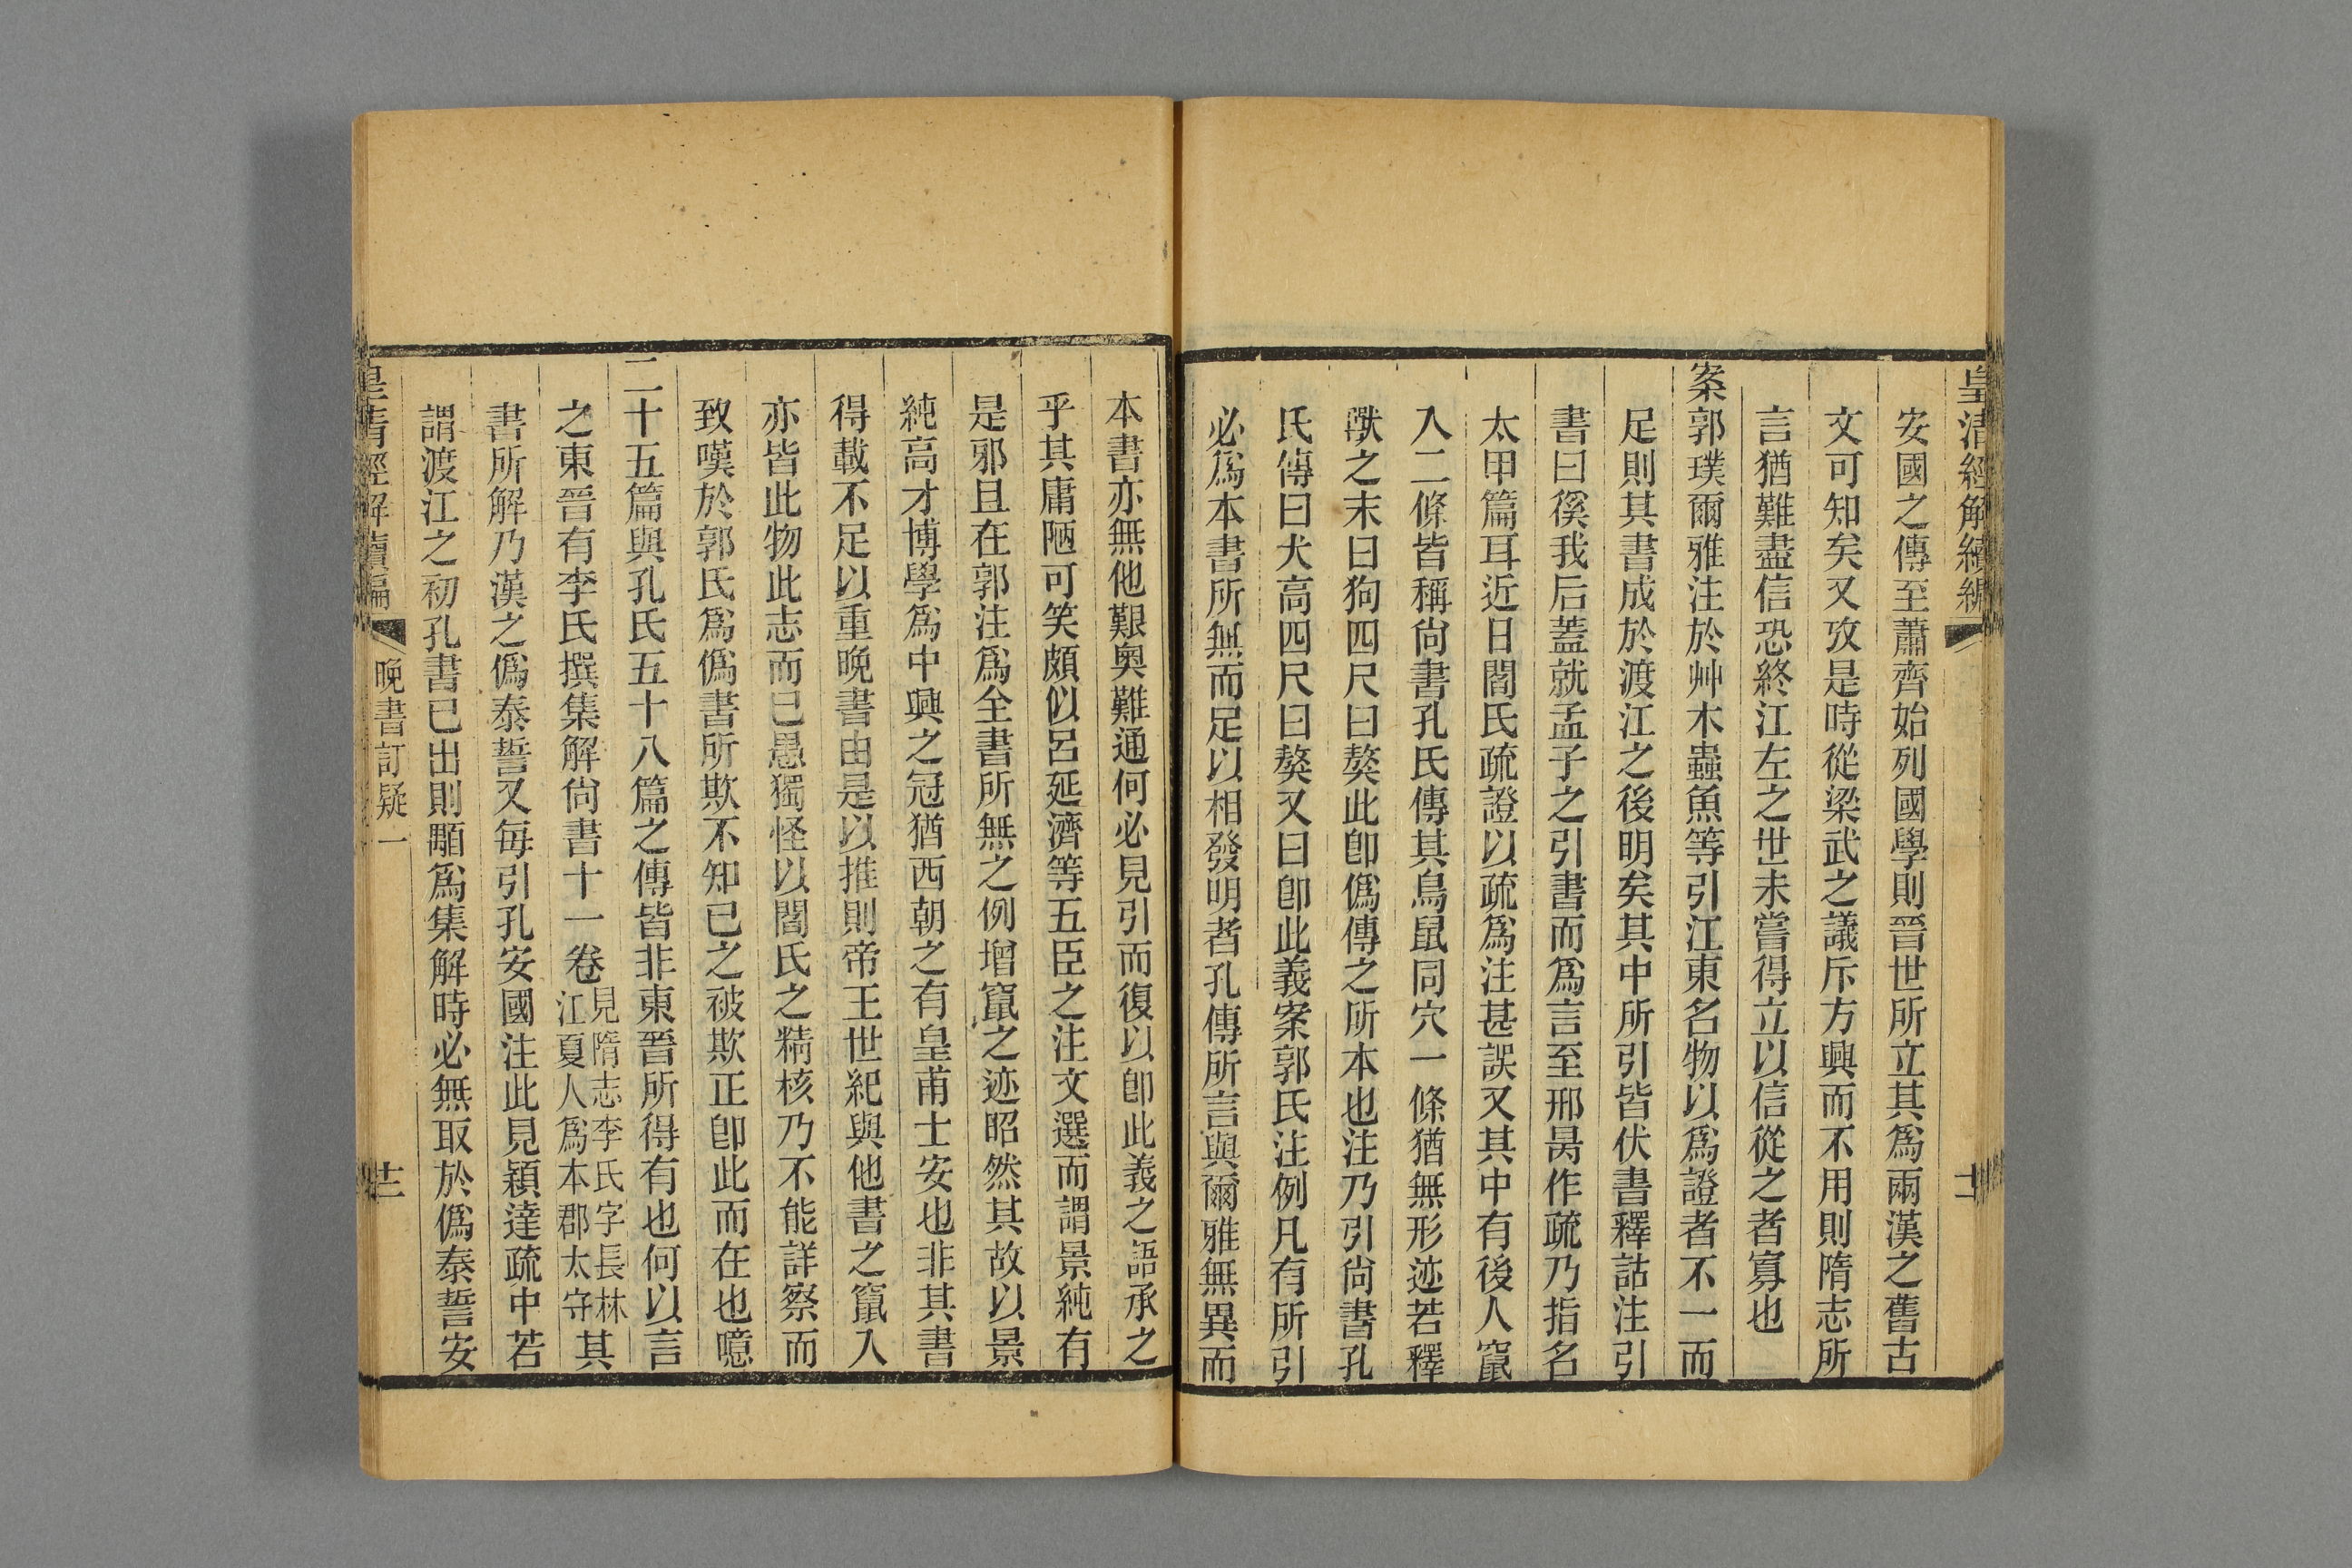 皇清經解續編
安國之傳至蕭齊始列國學則晉世所立其爲兩漢之舊古
文可知矣又攷是時從梁武之議斥方興而不用則隋志所
言猶難盡信恐終江左之世未嘗得立以信從之者寡也
案郭璞爾雅注於艸木蟲魚等引江東名物以爲證者不一而
足則其書成於渡江之後明矣其中所引皆伏書釋詁注引
書曰徯我后蓋就孟子之引書而爲言至邢昺作疏乃指名
太甲篇耳近日閻氏疏證以疏爲注甚誤又其中有後人竄
入二條皆稱尙書孔氏傳其鳥鼠同穴一條猶無形迹若釋
獸之末曰狗四尺曰獒此卽僞傳之所本也注乃引尙書孔
氏傳曰犬高四尺曰獒又曰卽此義案郭氏注例凡有所引
必爲本書所無而足以相發明者孔傳所言與爾雅無異而
本書亦無他艱奧難通何必見引而復以卽此義之語承之
乎其庸陋可笑頗似呂延濟等五臣之注文選而謂景純有
是邪且在郭注爲全書所無之例增竄之迹昭然其故以景
純高才博學爲中興之冠猶西朝之有皇甫士安也非其書
得載不足以重晚書由是以推則帝王世紀與他書之竄入
亦皆此物此志而已愚獨怪以閻氏之精核乃不能詳察而
致嘆於郭氏爲僞書所欺不知已之被欺正卽此而在也噫
二十五篇與孔氏五十八篇之傳皆非東晉所得有也何以言
之東晉有李氏撰集解尙書十一卷見隋志李氏字長林江夏人爲本郡太守其
書所解乃漢之僞泰誓又每引孔安國注此見穎達疏中若
謂渡江之初孔書已出則顒爲集解時必無取於僞泰誓安
皇清經解續編
晚書訂疑一